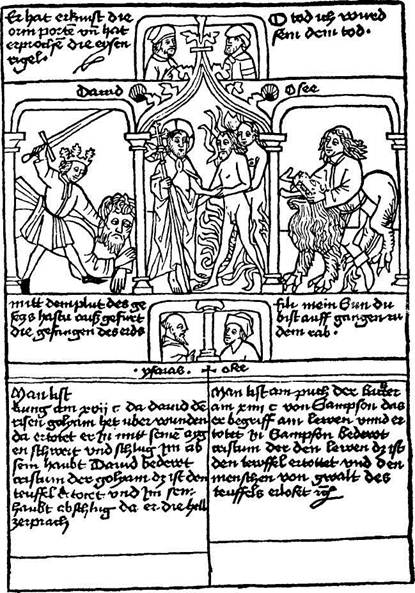 Er hat erknist die
orin porte vn̄ hat
erproche die eysen
rigel.
O tod ich wurd
sein dem tod.
David
Osee
mitt dem plut des ge
segs hastu auß gefurt
die gefangen des eids
für mein Sun du
bist auff gangen zu
dem rab.
ysaias. + oze
Man list
kung am xvij c da david de
risen goliam het uber wunden
da ertotet er in mitt seinē aig
en schwert und schlug im ab
sein haubt David bedewt
cristum der goliam dz ist den
teuffel ertotet und im sein
haubt abschlug da er die hell
zerprach
Man list am puch der
am xiiij c von Sampson das
er begriff am lewen unnd er
totet in Sampson bedewt
cristum der den lewen dz ist
den tewffel ertottet und den
menschen von gwalt des
teuffels erloset